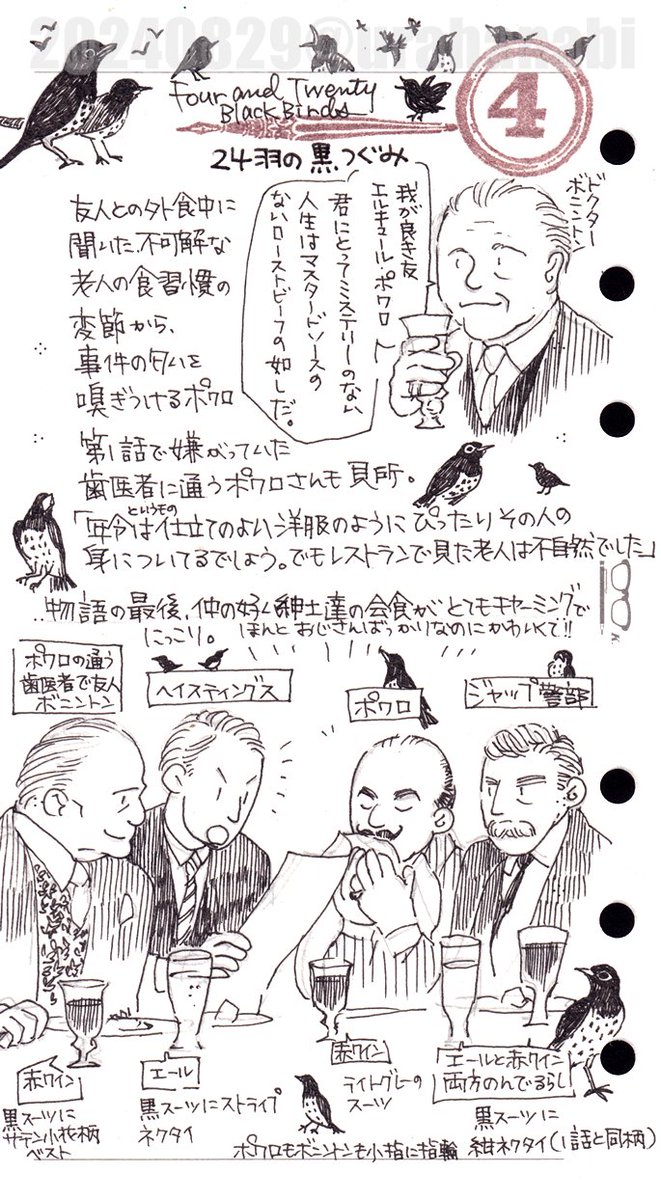 20240829@urahanabi
Four and Twenty
Black Birds
4
24羽の黒つぐみ
ドクター
ボニントン
我が良き友
エルキュール・ポワロ
君にとってミステリーのない
人生はマスタードソースの
ないローストビーフの如しだ。
友人との外食中に
聞いた、不可解な
老人の食習慣の
変節から、
事件の匂いを
嗅ぎつけるポワロ
第1話で嫌がっていた
歯医者に通うポワロさんも見所。
「年令というものは仕立てのよい洋服のようにぴったりその人の
身についてるでしょう。でもレストランで見た老人は不自然でした」
..物語の最後、仲の好い紳士達の会食がとてもチャーミングで
にっこり。
ほんとおじさんばっかりなのにかわいくて!!
ポワロの通う
歯医者で友人
ボニントン
ヘイスティングス
ポワロ
ジャップ警部
赤ワイン
エール
赤ワイン
エールと赤ワイン
両方のんでるらし
黒スーツに
サテン小花柄
ベスト
黒スーツにストライプ
ネクタイ
ライトグレーの
スーツ
黒スーツに
紺ネクタイ(1話と同柄)
ポワロもボニントンも小指に指輪